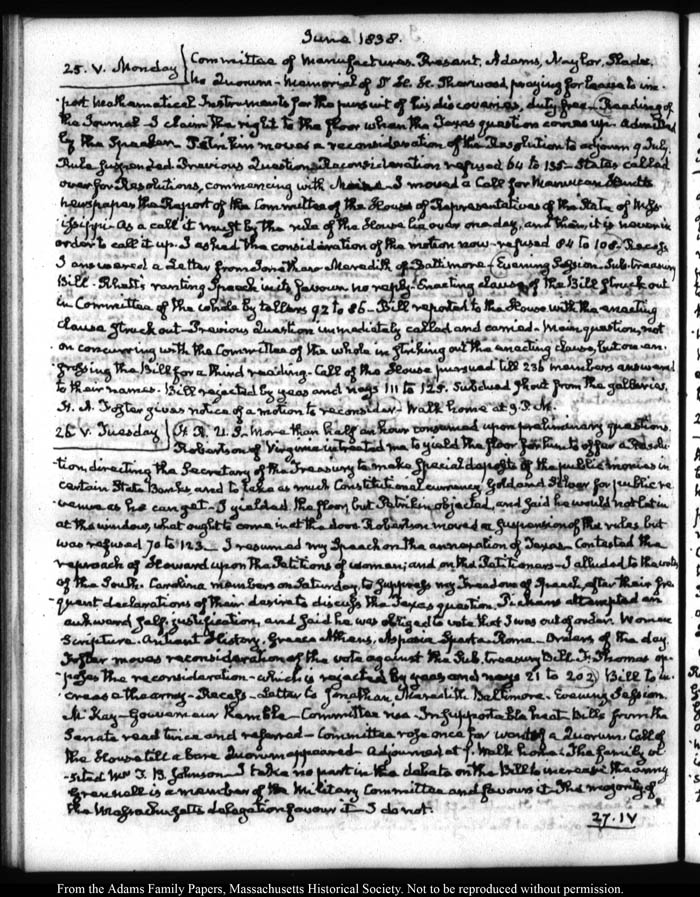 June 1838.
25. V. Monday Committee of Manufactures. Present, Adams, Naylor, Slade.
No Quorum – Memorial of Dr H. H. Sherwood, praying for leave to im-
port Mathematical Instruments for the pursuit of his discoveries, duty free – Reading of
the Journal – I claim the right to the floor when the Texas question comes up – admitted
by the Speaker – Petrikin moves a reconsideration of the Resolution to adjourn 9 July,
Rule suspended Previous Question. Reconsideration refused 64 to 135 – States called
over for Resolutions, commencing with Maine – I moved a Call for
newspaper the Report of the Committee of the House of Representatives of the State of Miss-
issippi – As a call it must by the rule of the House lie over one day, and then it is never in
order to call it up. I asked the consideration of the motion now – refused 84 to 108. Recess
I answered a Letter from Jonathan Meredith of Baltimore – Evening Session. Sub-treasury
Bill – Rhett's ranting Speech in its favour no reply – Enacting clause of the Bill struck out
in Committee of the whole by tellers 92 to 86 – Bill reported to the House with the enacting
clause struck out – Previous Question immediately called and carried – Main question, not
on concurring with the Committee of the whole in striking out the enacting clause, but on en-
grossing the Bill for a third reading – Call of the House pursued till 236 members answered
to their names – Bill rejected by yeas and nays 111 to 125. Subdued shout from the galleries.
H. A. Foster gives notice of a motion to reconsider – Walk home at 9 P.M.
26 V. Tuesday H. R. U. S. – More than half an hour consumed upon preliminary questions.
Robertson of Virginia intreated me to yield the floor for him to offer a Resolu-
tion, directing the Secretary of the Treasury to make special deposits of the public monies in
certain State Banks, and to take as much Constitutional currency, Gold and Silver for public re-
venue as he can get – I yielded the floor, but Petrikin objected, and said he would not let in
at the window, what ought to come in at the door. Robertson moved a suspension of the rules but
was refused 70 to 123 – I resumed my Speech on the annexation of Texas – Contested the
reproach of Howard upon the Petitions of women; and on the Petitioners – I alluded to the votes
of the South Carolina members on Saturday, to suppress my Freedom of Speech, after their fre-
quent declarations of their desire to discuss the Texas question. Pickens attempted an
awkward self-justification, and said he was obliged to vote that I was out of order. Women
Scripture. Antient History. Greece Athens, Aspasia Sparta – Rome – Orders of the day.
Foster moves reconsideration of the vote against the Sub-treasury Bill. F. Thomas op-
poses the reconsideration – which is rejected by yeas and nays 21 to 202) Bill to in-
crease the army – Recess – Letter to Jonathan Meredith Baltimore. Evening Session.
McKay – Gouverneur Kemble – Committee rise – Insupportable heat. Bills from the
Senate read twice and referred – Committee rose once for want of a Quorum. Call of
the House till a bare Quorum appeared – Adjourned at Walk home: The family vi-
-sited Mrs T. B. Johnson – I take no part in the debate on the Bill to increase the army
Grennell is a member of the Military Committee and favours it. The majority of
the Massachusetts delegation favour it – I do not.
27. IV
From the Adams Family Papers, Massachusetts Historical Society. Not to be reproduced without permission.